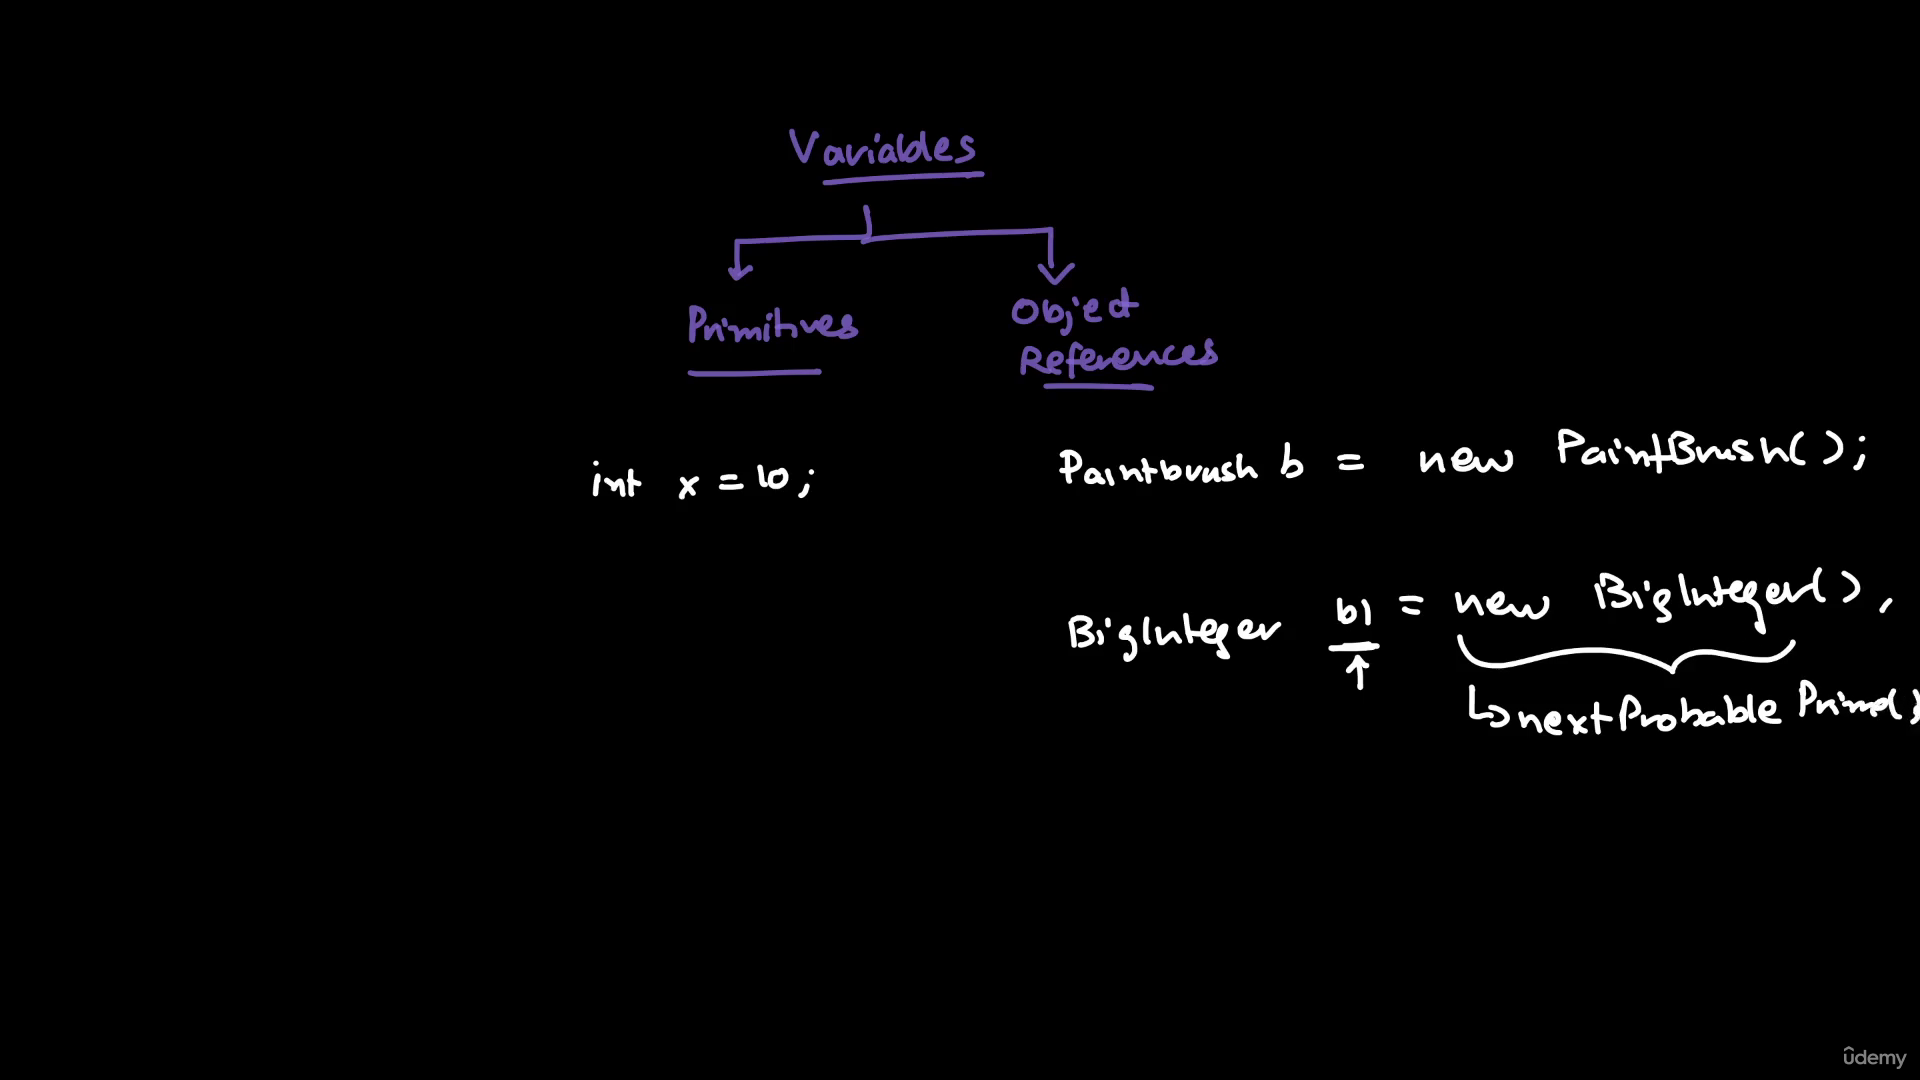 Variables
Primitives
Object
References
int x = 10;
Paintbrush b = new PaintBrush();
BigInteger b1 = new BigInteger(),
nextProbable Prime()
ûdemy